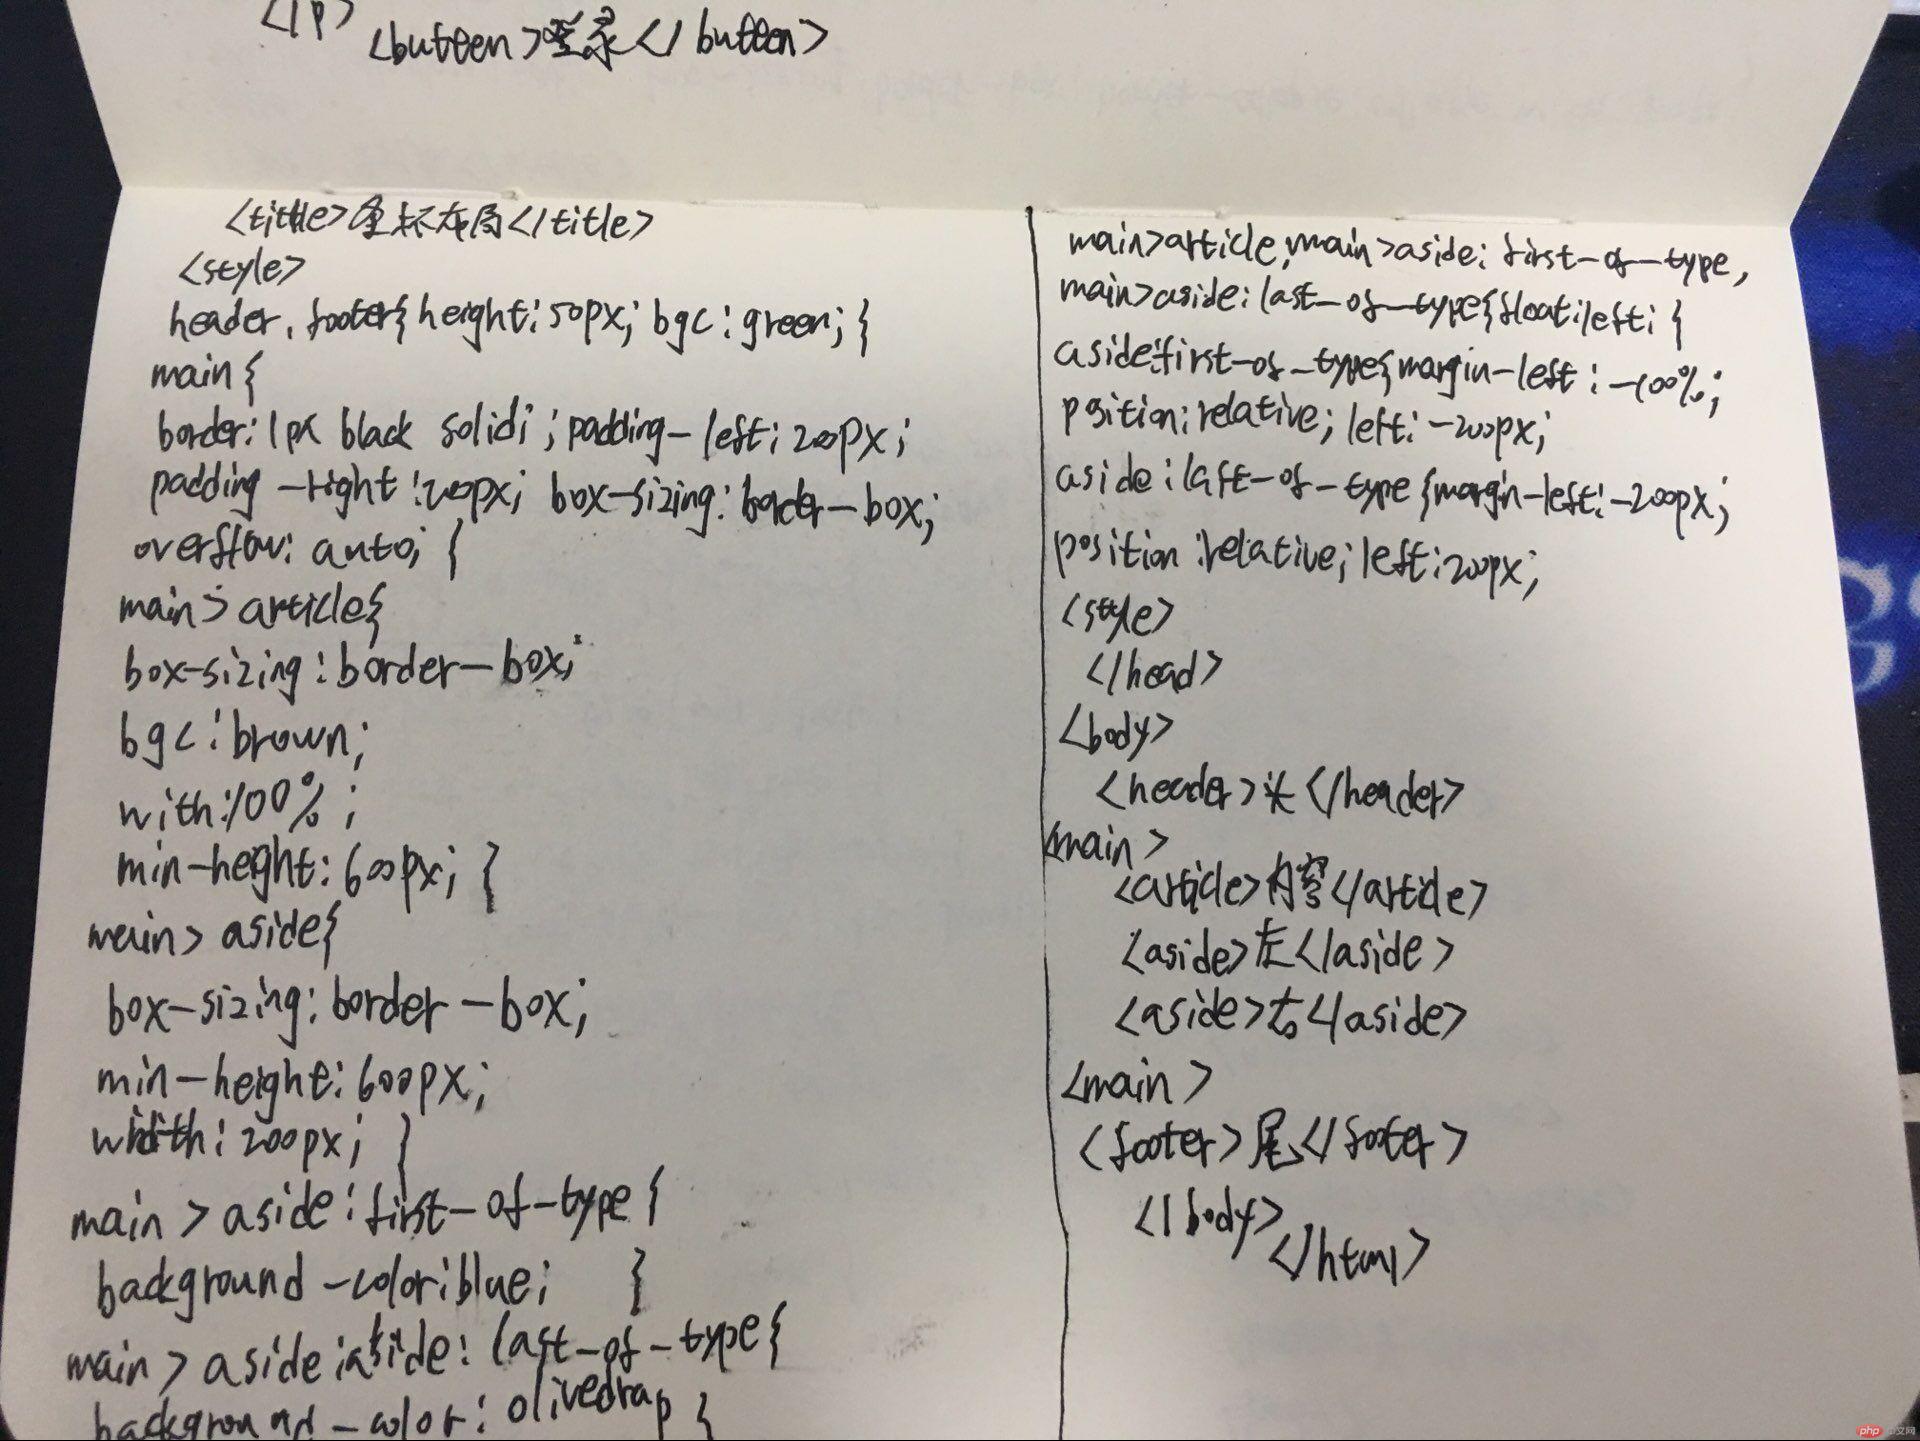 </p>
<button>登录</button>
<title>圣杯布局</title>
<style>
header, footer{ height:50px; bgc:green; {
main {
border:1px black solid; ; padding-left:200px;
padding-right:200px; box-sizing:border-box;
overflow: auto; {
main> article{
box-sizing:border-box;
bgc:brown;
with:100%;
min-height:600px; }
main> aside{
box-sizing:border-box;
min-height:600px;
width:200px; }
main > aside:first-of-type {
background-color:blue; }
main > aside:aside:last-of-type {
background-color: olivedrap {
main>article,main>aside:first-of-type,
main>aside:last-of-type{float:left; {
aside:first-of-type{margin-left:-100%;
position:relative; left:-200px;
aside:last-of-type {margin-left:-200px;
position:relative; left:200px;
<style>
</head>
<body>
<header>头</header>
<main>
<article>内容</article>
<aside>左</aside>
<aside>右</aside>
<main>
<footer>尾</footer>
</body>
</html>
php 中文网